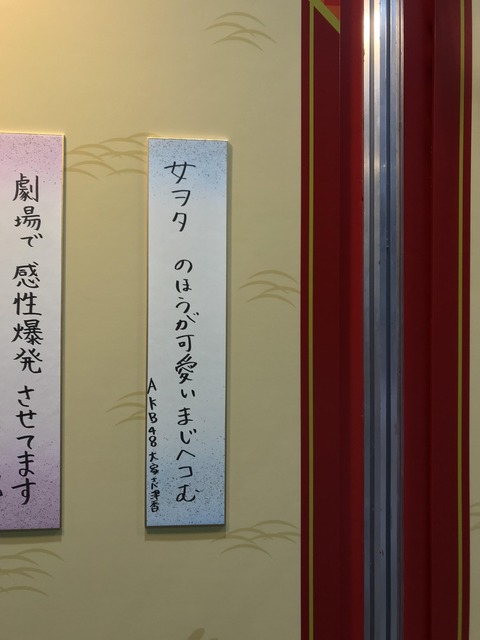 女ヲタ のほうが可愛いまじヘコむ
AKB48 大家志津香
劇場で 感性爆発 させてます